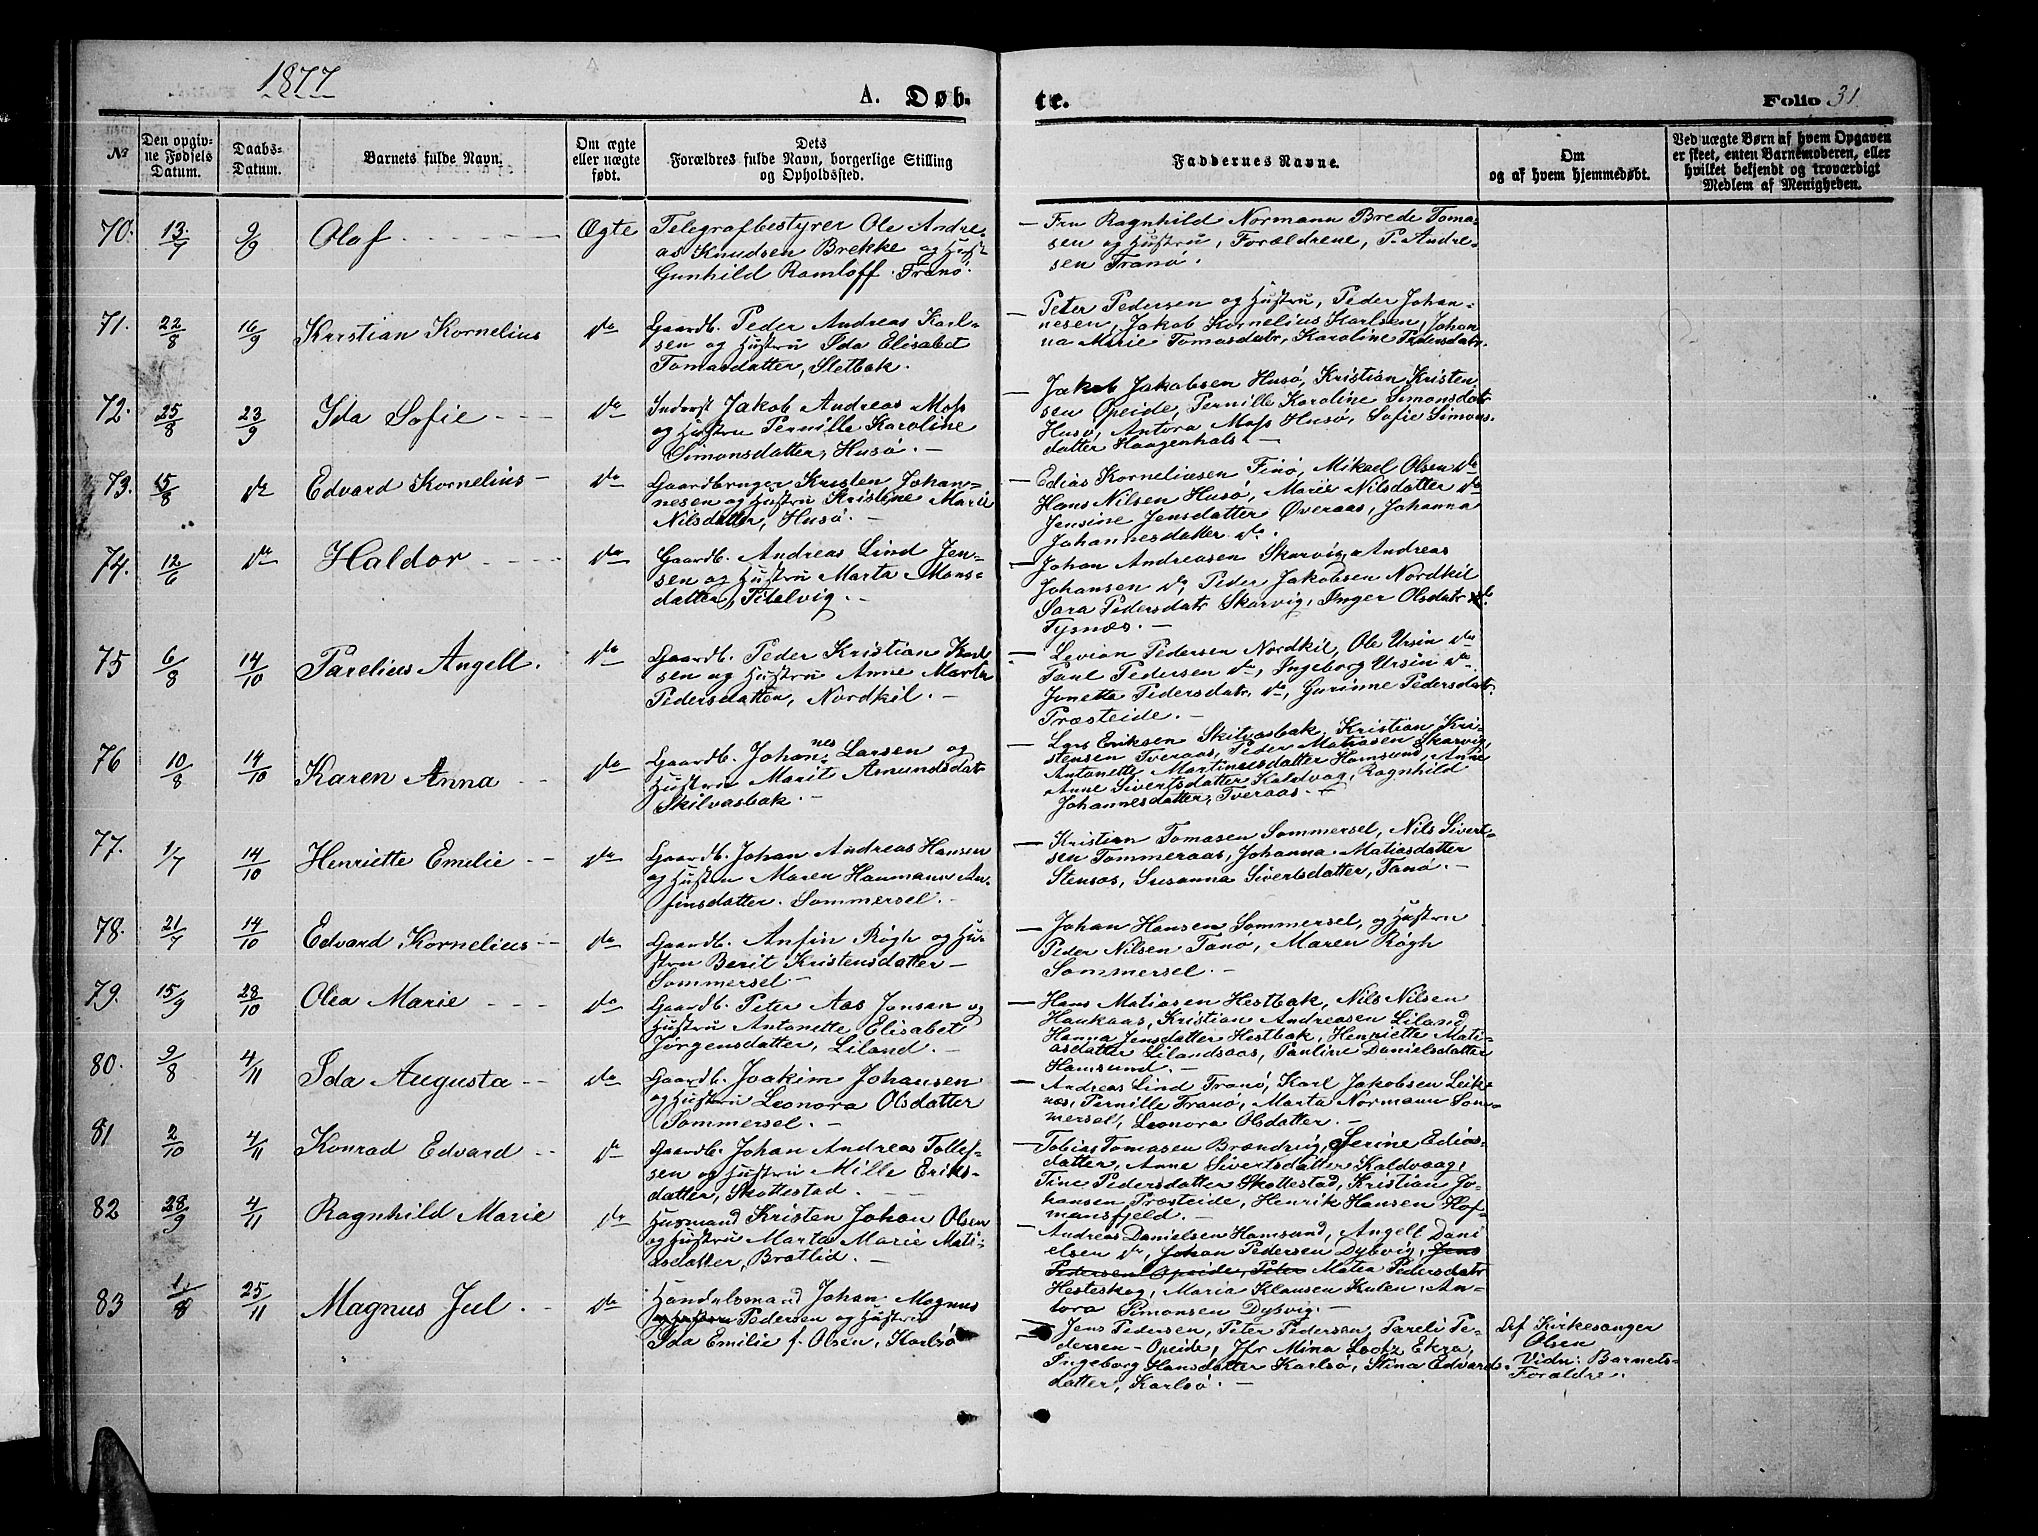 1877
A. Døb-
te.
Folio 31
№
Den opgiv-
ne Fødsels
Datum.
Daabs-
Datum.
Barnets fulde Navn.
Om ægte
eller uægte
født.
Dets
Forældres fulde Navn, borgerlige Stilling
og Opholdssted.
Faddernes Navne.
Om
og af hvem hjemmedøbt.
Ved uægte Børn af hvem Opgaven
er skeet, enten Barnemoderen, eller
hvilket bekjendt og troværdigt
Medlem af Menigheden.
70. 13/7 9/9 Olaf Ægte
Telegrafbestyrer Ole Andre-
as Knudsen Brekke og Hustr
Gunhild Ramloff. Tranö.
— Fru Ragnhild Normann Brede Toma-
sen og Hustru, Forældrene, P. Andre-
sen Tranö.
71. 22/8 16/9 Kristian Kornelius do
Gaardb. Peder Andreas Karl-
sen og Hustru Ida Elisabet
Tomasdatter, Sletbak.
— Peter Pedersen og Hustru, Peder Johan-
nesen, Jakob Kornelius Karlsen, Johan
na Marie Tomasdatr, Karoline Pedersdatr.
72. 25/8 23/9 Ida Sofie do
Inderst Jakob Andreas Moss
og Hustru Pernille Karoline
Simonsdatter, Husö. —
— Jakob Jakobsen Husö, Kristian Kristen
sen Opeide, Pernille Karoline Simonsdatr
Husö, Antora Moss Husö, Sofie Simons-
datter Haagenhals. —
73. 15/8 do Edvard Kornelius — do
Gaardbruger Kristen Johan-
nesen og Hustru Kristine Marie
Nilsdatter, Husö. —
— Edias Korneliusen Finö, Mikael Olsen do
Hans Nilsen Husö, Marie Nilsdatter do
Jensine Jensdatter Øveraas, Johanna
Johannesdatter do.
74. 12/6 do Haldor do
Gaardb. Andreas Lind Jen-
sen og Hustru Marta Mons-
datter, Fitelvig. —
— Johan Andreasen Skarvig, Andreas
Johansen do, Peder Jakobsen Nordkil
Sara Pedersdatr Skarvig, Inger Olsdatr do.
Tysnæs. —
75 6/8 14/10 Parelius Angell. do
Gaardb. Peder Kristian Karl
sen og Hustru Anne Marta
Pedersdatter, Nordkil. —
— Levion Pedersen Nordkil, Ole Ursin do
Paul Pedersen do, Ingeborg Ursin do
Jonetta Pedersdatr. do, Gurinne Pedersdatr.
Præsteide. —
76 10/8 14/10 Karen Anna do
Gaardb. Johannes Larsen og
Hustru Marit Asmundsdatr
Skilvasbak. —
— Lars Eriksen Skilvasbak, Kristian Kri-
stensen Tveraas, Peder Matiasen Skarvig,
Antonette Martinusdatter Hamsund, Anne
Anne Sivertsdatter Kaldvag, Ragnhild
Johannesdatter, Tveraas. —
77. 1/7 14/10 Henriette Emilie — do
Gaardb. Johan Andreas Hansen
og Hustru Maren Haumann An-
finsdatter. Sommersel. —
— Kristian Tomasen Sommersel, Nils Sivert-
sen Tommeraas, Johanna Matiasdatter
Stensos, Susanna Sivertsdatter, Tanö. —
78. 21/7 14/10 Edvard Kornelius — do
Gaardb. Anfin Rögh og Hu-
stru Berit Kristensdatter —
Sommersel
— Johan Hansen Sommersel, og Hustru
Peder Nilsen Tanö, Maren Rögh
Sommersel. —
79. 15/9 28/10 Olea Marie do
Gaardb. Peter Aas Jensen og
Hustru Antonette Elisabet
Jörgensdatter, Liland. —
— Hans Matiasen Hestbak, Nils Nilsen
Haukaas, Kristian Andreasen Liland,
Hanna Jensdatter Hestbak, Henriette Mati-
asdatter Lilandsaas, Pauline Danielsdatter
Hamsund. —
80. 9/8 4/11 Ida Augusta — do
Gaardb. Joakim Johansen
og Hustru Leonora Olsdatter
Sommersel. —
— Andreas Lind Tranö, Karl Jakobsen Leik-
næs, Pernille Tranö, Marta Normann Som-
mersel, Leonora Olsdatter. —
81 2/10 4/11 Konrad Edvard — do
Gaardb. Johan Andreas Tollef-
sen og Hustru Mille Eriks-
datter, Skottestad. —
— Tobias Tomasen Brændvig, Serine Edias-
datter, Anne Sivertsdatter Kaldvaag,
Tine Pedersdatter Skottestad, Kristian Jo-
hansen Præsteide, Henrik Hansen Hof-
mansfjeld. —
82 28/9 4/11 Ragnhild Marie do
Husmand Kristen Johan Olsen
og Hustru Marta Marie Mati-
asdatter, Bratlid. —
— Andreas Danielsen Hamsund, Angell Dani
elsen do, Johan Pedersen Dybvig, Jens
Pedersen Opeide, Peter Matea Pedersdatr
Hesteskog, Maria Klausen Kulen, An-
tora Simonsen Dybvig. —
83 1/8 25/11 Magnus Jul. do
Handelsmand Johan Magnus
Pedersen og Hustru
Ida Emilie f. Olsen, Karlsö
— Jens Pedersen, Peter Pedersen, Pareli Pe-
dersen — Opeide, Jfr Mina Lootz Ekra,
Ingeborg Hansdatter Karlsö, Stina Edvards-
datter, Karlsö. —
Af Kirkesanger
Olsen
Vidn: Barnets
Forældre.